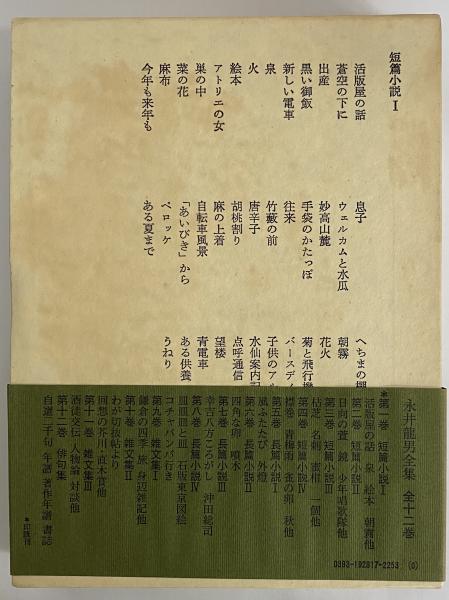 短篇小説 I
活版屋の話
蒼空の下に
出産
黒い御飯
新しい電車
泉
火
絵本
アトリエの女
巣の中
菜の花
麻布
今年も来年も
息子
ウェルカムと水瓜
妙高山麓
手袋のかたっぽ
往来
竹藪の前
唐辛子
胡桃割り
麻の上着
自転車風景
「あいびき」から
ペロッケ
ある夏まで
へちまの棚
朝霧
花火
菊と飛行機
バースディ
子供のアル
水仙案内記
点呼通信
望楼
青電車
ある供養
うねり
永井龍男全集 全十二巻
*第一巻 短篇小説I
活版屋の話 泉 絵本 朝霧他
第二巻 短篇小説II
日向の萱 鏡 少年唱歌隊他
第三巻 短篇小説III
枯芝 名刺 蜜柑 一個他
第四巻 短篇小説IV
標巻 青梅雨 雀の卵 秋他
第五巻 長篇小説I
風ふたたび 外燈
第六巻 長篇小説II
四角な卵 噴水
第七巻 長篇小説III
幸吉八方ころがし 沖田総司
第八巻 長篇小説IV
皿皿皿と皿 石版東京図絵
コチャバンバ行き
第九巻 雑文集I
鎌倉の四季 旅 身辺雑記他
第十巻 雑文集II
わが切抜帖より
回想の芥川・直木賞他
第十一巻 雑文集III
酒徒交伝 人物論 対談他
第十二巻 俳句集
自選三千句 年譜 著作年譜 書誌
*印既刊
0393-192817-2253 (0)